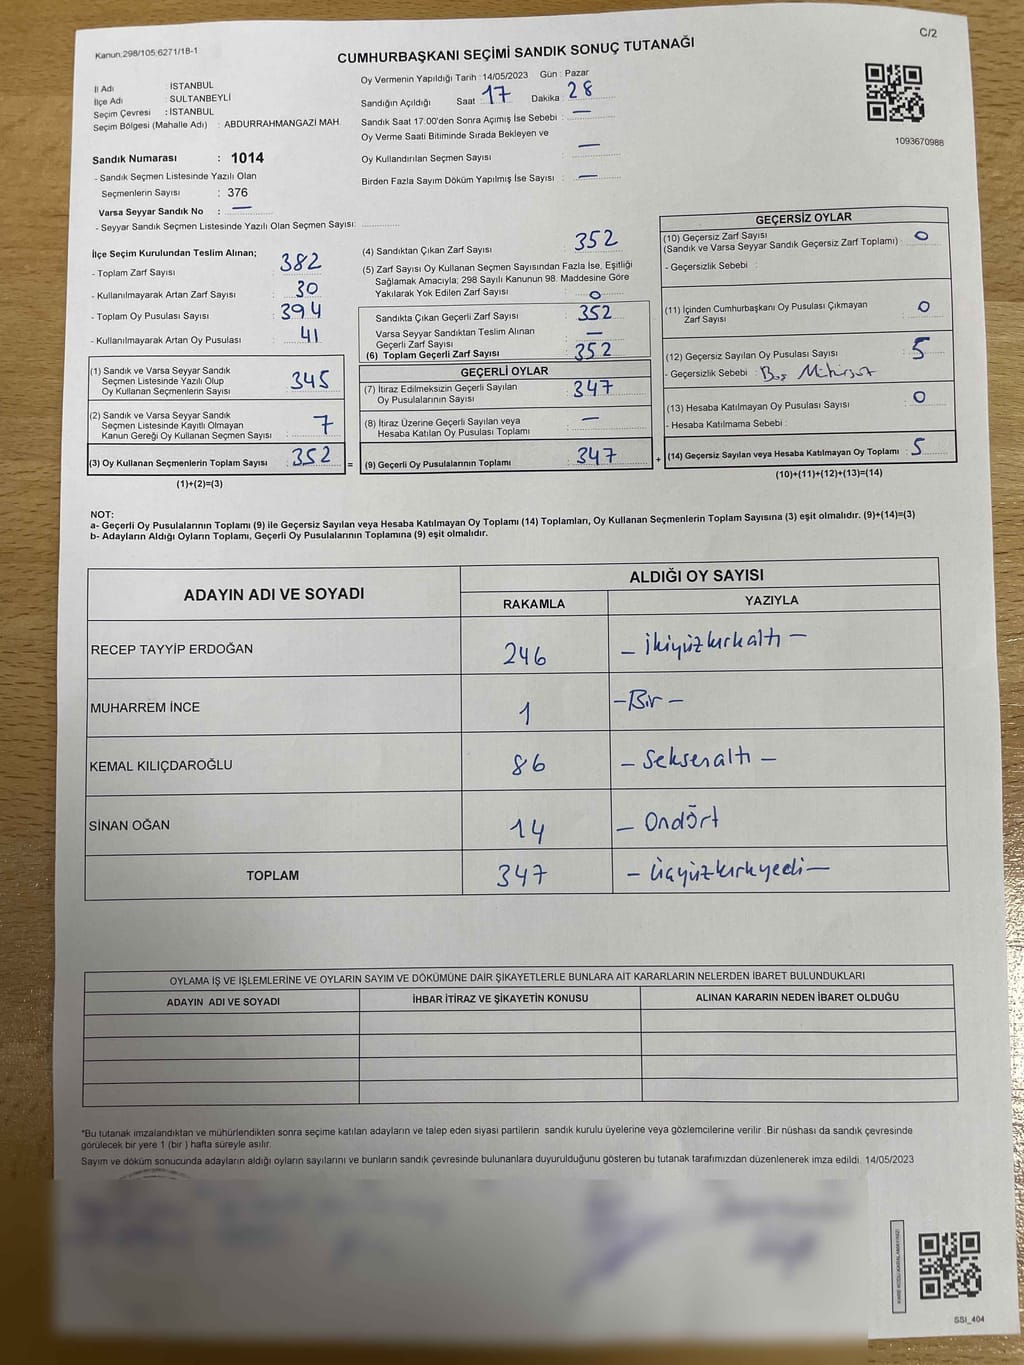 Kanun:298/105:6271/18-1
C/2
CUMHURBAŞKANI SEÇİMİ SANDIK SONUÇ TUTANAĞI
1093670988
İl Adı : İSTANBUL
İlçe Adı : SULTANBEYLİ
Seçim Çevresi : İSTANBUL
Seçim Bölgesi (Mahalle Adı) : ABDURRAHMANGAZİ MAH.
Sandık Numarası : 1014
- Sandık Seçmen Listesinde Yazılı Olan
Seçmenlerin Sayısı : 376
Varsa Seyyar Sandık No : —
- Seyyar Sandık Seçmen Listesinde Yazılı Olan Seçmen Sayısı:
Oy Vermenin Yapıldığı Tarih : 14/05/2023 Gün : Pazar
Sandığın Açıldığı Saat : 17 Dakika : 28
Sandık Saat 17:00'den Sonra Açımış İse Sebebi : —
Oy Verme Saati Bitiminde Sırada Bekleyen ve
Oy Kullandırılan Seçmen Sayısı : —
Birden Fazla Sayım Döküm Yapılmış İse Sayısı : —
İlçe Seçim Kurulundan Teslim Alınan;
- Toplam Zarf Sayısı : 382
- Kullanılmayarak Artan Zarf Sayısı : 30
- Toplam Oy Pusulası Sayısı : 394
- Kullanılmayarak Artan Oy Pusulası : 41
(1) Sandık ve Varsa Seyyar Sandık
Seçmen Listesinde Yazılı Olup
Oy Kullanan Seçmenlerin Sayısı : 345
(2) Sandık ve Varsa Seyyar Sandık
Seçmen Listesinde Kayıtlı Olmayan
Kanun Gereği Oy Kullanan Seçmen Sayısı : 7
(3) Oy Kullanan Seçmenlerin Toplam Sayısı : 352 =
(1)+(2)=(3)
(4) Sandıktan Çıkan Zarf Sayısı : 352
(5) Zarf Sayısı Oy Kullanan Seçmen Sayısından Fazla İse, Eşitliği
Sağlamak Amacıyla; 298 Sayılı Kanunun 98. Maddesine Göre
Yakılarak Yok Edilen Zarf Sayısı : 0
Sandıkta Çıkan Geçerli Zarf Sayısı : 352
Varsa Seyyar Sandıktan Teslim Alınan
Geçerli Zarf Sayısı : —
(6) Toplam Geçerli Zarf Sayısı : 352
GEÇERLİ OYLAR
(7) İtiraz Edilmeksizin Geçerli Sayılan
Oy Pusulalarının Sayısı : 347
(8) İtiraz Üzerine Geçerli Sayılan veya
Hesaba Katılan Oy Pusulası Toplamı : —
(9) Geçerli Oy Pusulalarının Toplamı : 347 +
GEÇERSİZ OYLAR
(10) Geçersiz Zarf Sayısı
(Sandık ve Varsa Seyyar Sandık Geçersiz Zarf Toplamı) : 0
- Geçersizlik Sebebi :
(11) İçinden Cumhurbaşkanı Oy Pusulası Çıkmayan
Zarf Sayısı : 0
(12) Geçersiz Sayılan Oy Pusulası Sayısı : 5
- Geçersizlik Sebebi : Boş
(13) Hesaba Katılmayan Oy Pusulası Sayısı : 0
- Hesaba Katılmama Sebebi :
(14) Geçersiz Sayılan veya Hesaba Katılmayan Oy Toplamı : 5
(10)+(11)+(12)+(13)=(14)
NOT:
a- Geçerli Oy Pusulalarının Toplamı (9) ile Geçersiz Sayılan veya Hesaba Katılmayan Oy Toplamı (14) Toplamları, Oy Kullanan Seçmenlerin Toplam Sayısına (3) eşit olmalıdır. (9)+(14)=(3)
b- Adayların Aldığı Oyların Toplamı, Geçerli Oy Pusulalarının Toplamına (9) eşit olmalıdır.
ADAYIN ADI VE SOYADI
ALDIĞI OY SAYISI
RAKAMLA YAZIYLA
RECEP TAYYİP ERDOĞAN 246 – İkiyüzkırkaltı –
MUHARREM İNCE 1 – Bir –
KEMAL KILIÇDAROĞLU 86 – Seksenaltı –
SİNAN OĞAN 14 – Ondört
TOPLAM 347 – Üçyüzkırkyedi –
OYLAMA İŞ VE İŞLEMLERİNE VE OYLARIN SAYIM VE DÖKÜMÜNE DAİR ŞİKAYETLERLE BUNLARA AİT KARARLARIN NELERDEN İBARET BULUNDUKLARI
ADAYIN ADI VE SOYADI İHBAR İTİRAZ VE ŞİKAYETİN KONUSU ALINAN KARARIN NEDEN İBARET OLDUĞU
*Bu tutanak imzalandıktan ve mühürlendikten sonra seçime katılan adayların ve talep eden siyasi partilerin sandık kurulu üyelerine veya gözlemcilerine verilir .Bir nüshası da sandık çevresinde
görülecek bir yere 1 (bir ) hafta süreyle asılır.
Sayım ve döküm sonucunda adayların aldığı oyların sayılarını ve bunların sandık çevresinde bulunanlara duyurulduğunu gösteren bu tutanak tarafımızdan düzenlenerek imza edildi. 14/05/2023
KARE KODU KARALAMAYINIZ!
SSI_404